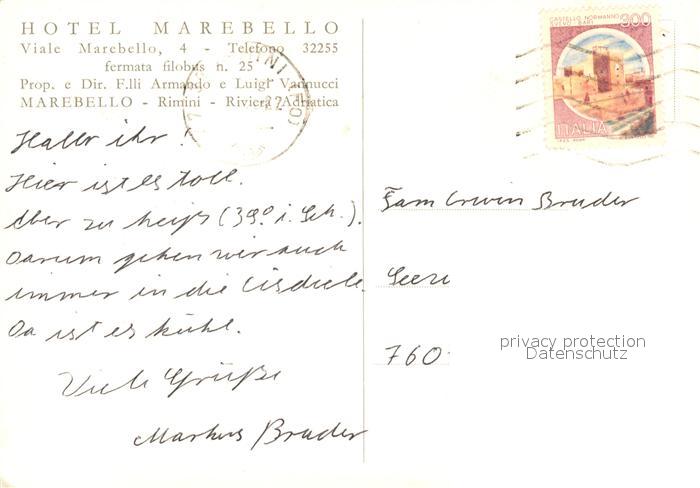 HOTEL MAREBELLO
Viale Marebello, 4 - Telefono 32255
fermata filobus n. 25
Prop. e Dir. F.lli Armando e Luigi Vannucci
MAREBELLO - Rimini - Riviera Adriatica
CASTELLO NORMANNO
SVEVO - BARI
300
ITALIA
Hallo ihr!
Hier ist es toll.
Aber zu heiß (39° i. Sch.).
Darum gehen wir auch
immer in die Eisdiele.
Da ist es kühl.
Viele Grüße
Markus Bruder
Fam Erwin Bruder
760
privacy protection
Datenschutz